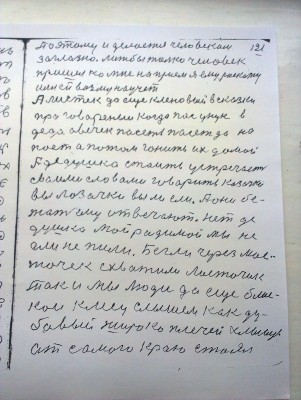 Поэтому и делается человекам 121
заглазно. Лишбы толко человек
пришом ко мне на прием я ему раскажу
или ей возму научет
А листок да еще кленовый в сказки
про говарению когда пас унук в
деда овечек пасеть пасеть да на
поет а потом гонить их домой
А дедушка стоить устречаеть
своими словами говорить козочки
вы лозочки вы ели. А они бе-
жат ему отвечають. Нет де
душка мой радимой мы не
ели не пили. Бегли через мос-
точек схватили листочик
Так и мы люди да еще близ-
кои к лесу слышем как ду-
бовый широко плечей
от самого краю стоял